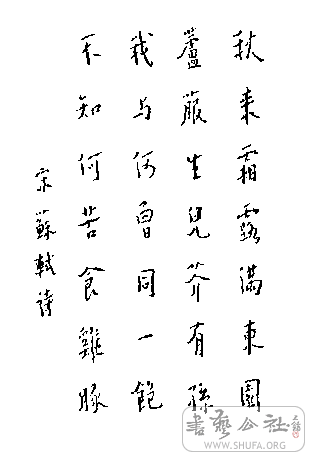 秋来霜露满東園
蘆菔生兒芥有孫
我与何曾同一飽
不知何苦食雞豚
宋蘇軾詩
書藝公社
WWW.SHUFA.ORG